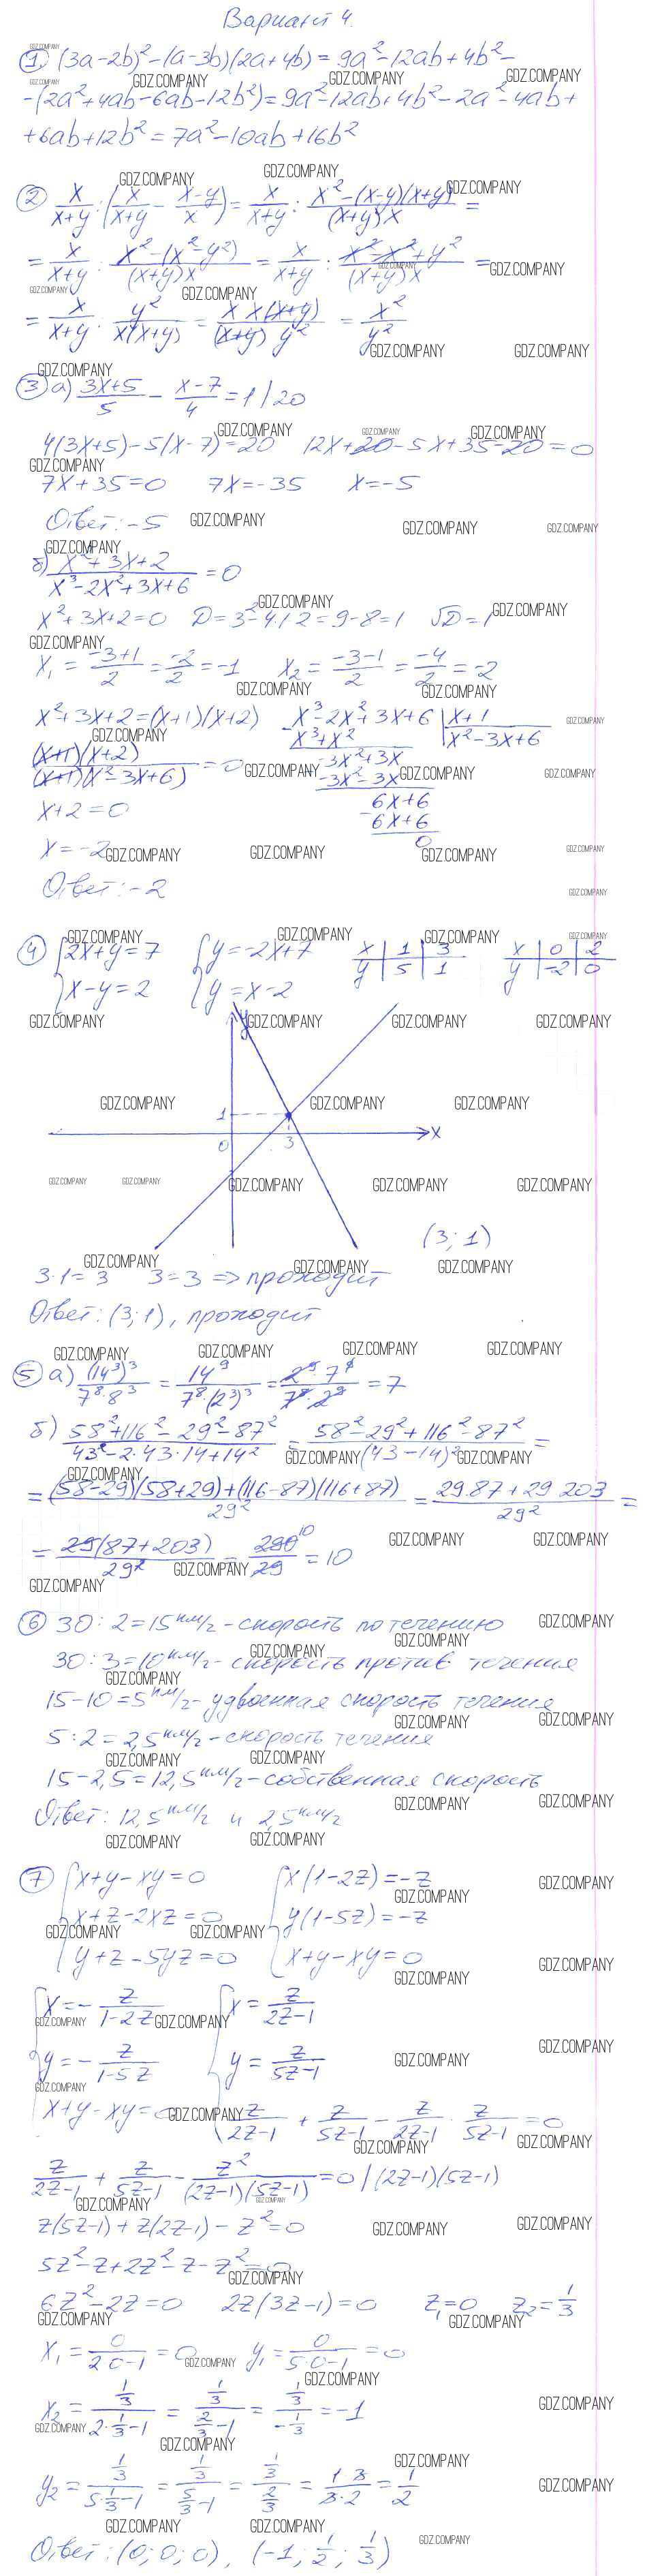 Вариант 4.
1) (3a-2b)² - (a-3b)(2a+4b) = 9a² - 12ab + 4b² -
- (2a² + 4ab - 6ab - 12b²) = 9a² - 12ab + 4b² - 2a² - 4ab +
+ 6ab + 12b² = 7a² - 10ab + 16b²
2) x/(x+y) : (x/(x+y) - (x-y)/x) = x/(x+y) : (x² - (x-y)(x+y))/((x+y)x) =
= x/(x+y) : (x² - (x² - y²))/((x+y)x) = x/(x+y) : (x² - x² + y²)/((x+y)x) =
= x/(x+y) : y²/(x(x+y)) = (x x(x+y))/((x+y) y²) = x²/y²
3) а) (3x+5)/5 - (x-7)/4 = 1 | 20
4(3x+5) - 5(x-7) = 20 12x + 20 - 5x + 35 - 20 = 0
7x + 35 = 0 7x = -35 x = -5
Ответ: -5
б) (x² + 3x + 2)/(x³ - 2x² + 3x + 6) = 0
x² + 3x + 2 = 0 D = 3² - 4·1·2 = 9 - 8 = 1 √D = 1
x₁ = (-3+1)/2 = -2/2 = -1 x₂ = (-3-1)/2 = -4/2 = -2
x² + 3x + 2 = (x+1)(x+2) x³ - 2x² + 3x + 6 | x+1
- x³ + x² x² - 3x + 6
((x+1)(x+2))/((x+1)(x² - 3x + 6)) = 0 -3x² + 3x
- -3x² - 3x
x + 2 = 0 6x + 6
- 6x + 6
x = -2 0
Ответ: -2
4) { 2x + y = 7 { y = -2x + 7 x | 1 | 3 x | 0 | 2
{ x - y = 2 { y = x - 2 y | 5 | 1 y | -2 | 0
y
1
x
0 3
(3; 1)
3·1 = 3 3 = 3 => проходит
Ответ: (3; 1), проходит
5) а) (14³)³/(7⁸·8³) = 14⁹/(7⁸·(2³)³) = (2⁹·7⁹)/(7⁸·2⁹) = 7
б) (58² + 116² - 29² - 87²)/(43² - 2·43·14 + 14²) = (58² - 29² + 116² - 87²)/(43-14)² =
= ((58-29)(58+29) + (116-87)(116+87))/29² = (29·87 + 29·203)/29² =
= 29(87+203)/29² = 290/29 = 10
6) 30 : 2 = 15 км/ч - скорость по течению
30 : 3 = 10 км/ч - скорость против течения
15 - 10 = 5 км/ч - удвоенная скорость течения
5 : 2 = 2,5 км/ч - скорость течения
15 - 2,5 = 12,5 км/ч - собственная скорость
Ответ: 12,5 км/ч и 2,5 км/ч
7) { x + y - xy = 0 { x(1-2z) = -z
{ x + z - 2xz = 0 { y(1-5z) = -z
{ y + z - 5yz = 0 { x + y - xy = 0
{ x = - z/(1-2z) { x = z/(2z-1)
{ y = - z/(1-5z) { y = z/(5z-1)
{ x + y - xy = 0 { z/(2z-1) + z/(5z-1) - z/(2z-1) · z/(5z-1) = 0
z/(2z-1) + z/(5z-1) - z²/((2z-1)(5z-1)) = 0 | (2z-1)(5z-1)
z(5z-1) + z(2z-1) - z² = 0
5z² - z + 2z² - z - z² = 0
6z² - 2z = 0 2z(3z-1) = 0 z₁ = 0 z₂ = 1/3
x₁ = 0/(2·0-1) = 0 y₁ = 0/(5·0-1) = 0
x₂ = (1/3)/(2·1/3-1) = (1/3)/(2/3-1) = (1/3)/(-1/3) = -1
y₂ = (1/3)/(5·1/3-1) = (1/3)/(5/3-1) = (1/3)/(2/3) = (1·3)/(3·2) = 1/2
Ответ: (0; 0; 0), (-1; 1/2; 1/3)
GDZ.COMPANY